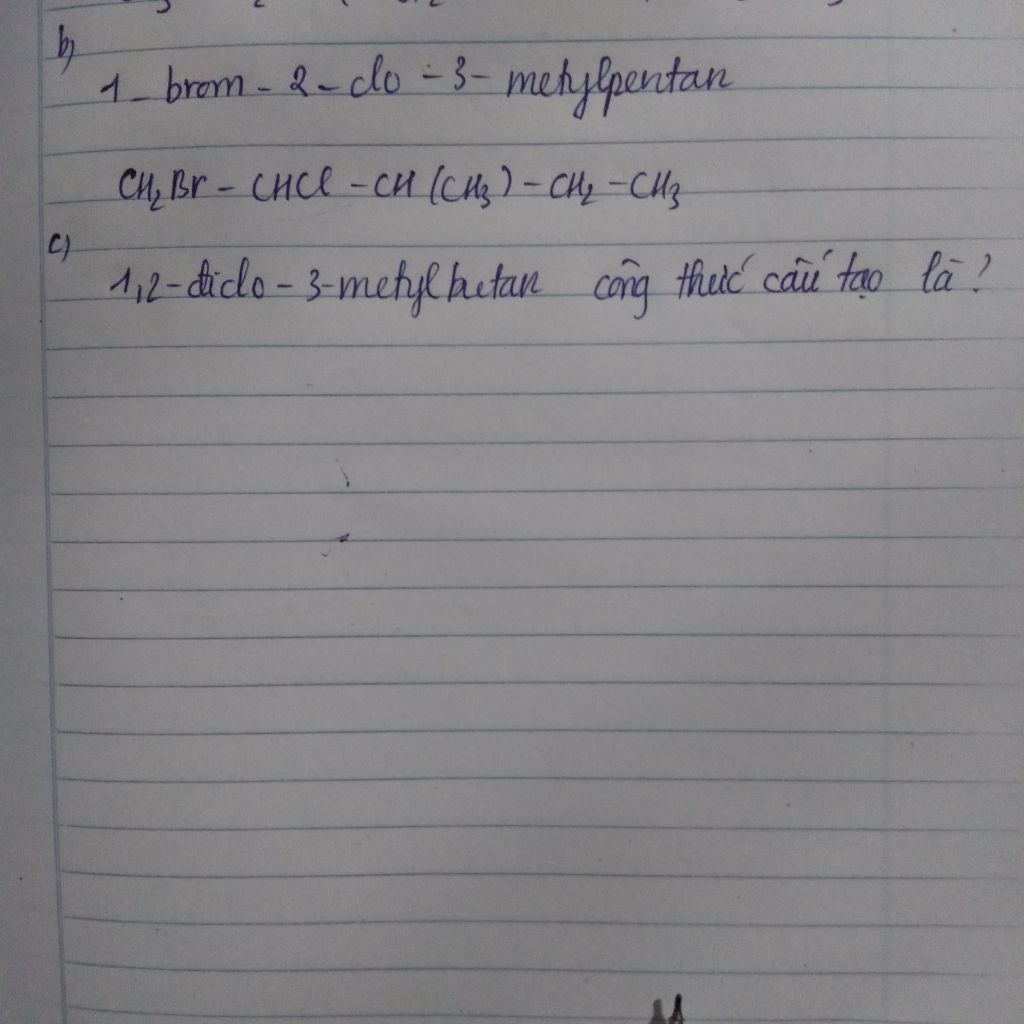 b)
1 - brom - 2 - clo - 3 - metylpentan
CH₂Br - CHCl - CH (CH₃) - CH₂ - CH₃
c)
1,2 - điclo - 3 - metylbutan công thức cấu tạo là?